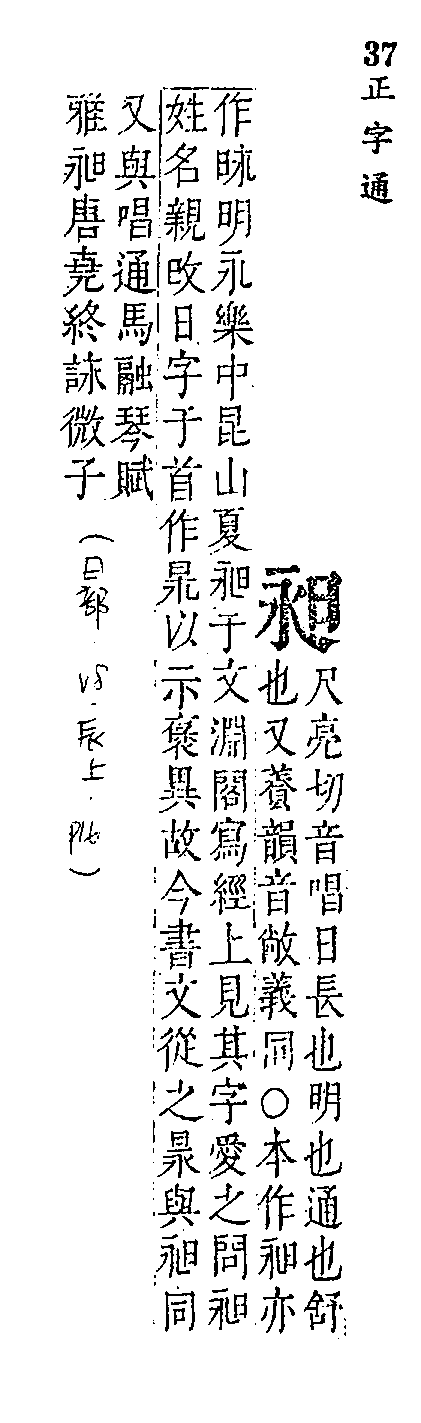 37 正字通
昶
尺亮切音唱日長也明也通也舒
也又養韻音敞義同○本作昶亦
作昹明永樂中昆山夏昶于文淵閣寫經上見其字愛之問昶
姓名親改日字于首作㫤以示褒異故今書文從之㫤與昶同
又與唱通馬融琴賦
雅昶唐堯終詠微子
(日部. 辰上. P16)